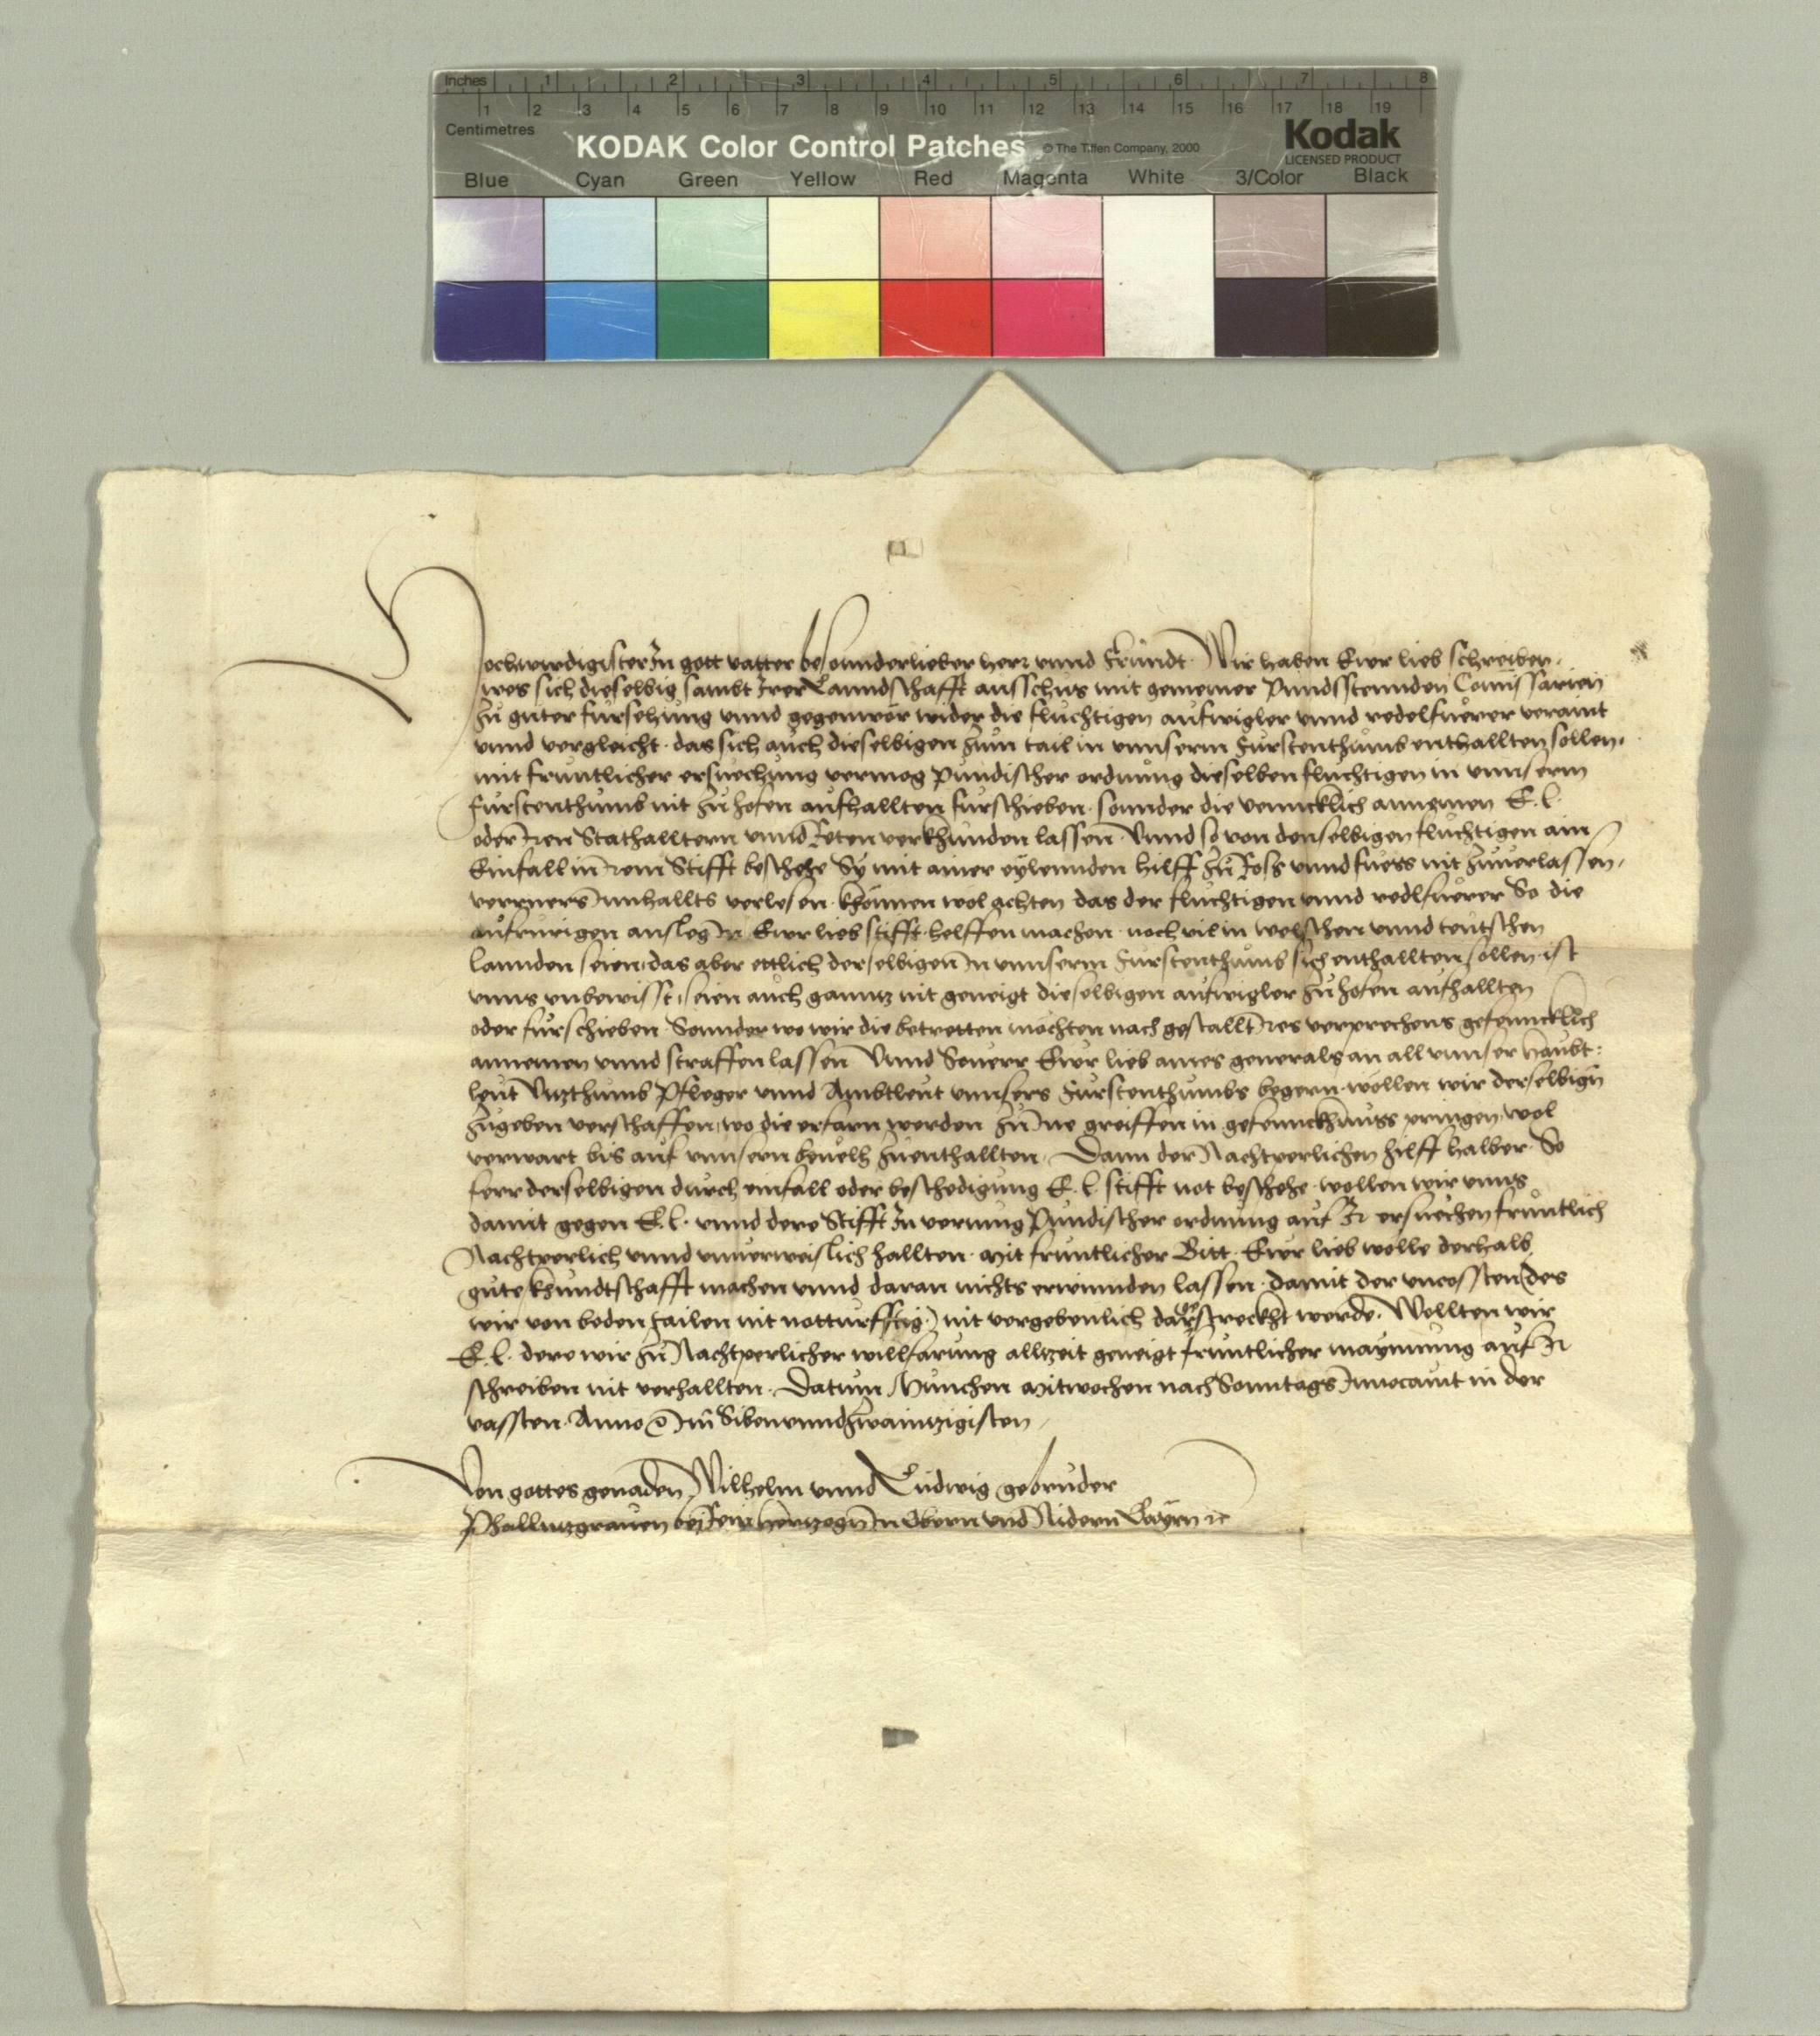 Inches 1 2 3 4 5 6 7 8
1 2 3 4 5 6 7 8 9 10 11 12 13 14 15 16 17 18 19
Centimetres
KODAK Color Control Patches © The Tiffen Company, 2000 Kodak
LICENSED PRODUCT
Blue Cyan Green Yellow Red Magenta White 3/Color Black
Hochwirdigister In gott vatter besonnderlieber herr unnd Fründt. Wir haben Ewr lieb schreiben,
wes sich dieselbig sambt Irer Lanndschafft ausschus mit gemeiner Pundsstennden Comissarien
zu guter fürsehung unnd gegenwör wider die fluchtigen aufwigler unnd redelfuerer veraint
unnd vergleicht. das sich auch dieselbigen zum tail in unnserm Fürstenthumb enthallten sollen,
mit fruntlicher ersuechung vermog Pundischer ordnung dieselben fluchtigen in unnserm
Fürstenthumb nit zu hofen aufhallten fürschieben. sonnder die vennckhlich annemen E. l.
oder Iren Stathalltern unnd Reten verkhunden lassen. Unnd so von denselbigen fluchtigen ain
Einfall in Iren Stifft beschehe Sy mit ainer eylennden hilff zu Ross unnd fuess nit zuverlassen,
verrners Innhallts verlesen. khönnen wol achten das der fluchtigen unnd redlfuerer So die
aufrurigen ansleg In Ewr lieb stifft helffen machen. noch vil in welschen unnd teutschen
lannden seien, das aber ettlich derselbigen In unnserm Fürstenthumb sich enthallten sollen. ist
unns unbewisst, seien auch ganntz nit geneigt dieselbigen aufwigler zu hofen aufhallten
oder fürschieben Sonnder wo wir die betretten möchten nach gestallt Ires verprechens gefennckhlich
annemen unnd straffen lassen Unnd Soverr Ewr lieb aines generals an all unnser haubt-
leut Vitzthumb Pfleger unnd Ambtleut unnsers Fürstenthumbs begern. wollen wir derselbign
zugeben verschaffen, wo die erfarn werden zu Ine greiffen in gefennckhnuss pringen, wol
verwart bis auf unnsern bevelh zuenthallten. Dann der Nachtperlichen hilff halber. So
ferr derselbigen durch einfall oder beschedigung E. l. stifft not beschehe. wollen wir unns
damit gegen E. l. unnd dero Stifft In vermug Pundischer ordnung auf Ir ersuechen fruntlich
Nachtperlich unnd unverweislich hallten. Mit fruntlicher Bitt. Ewr lieb wölle derhalb
gute khundtschafft machen unnd daran nichts erwinnden lassen. damit der uncossten (des
wir von beden tailen nit notturfftig) nit vergebenlich dargestreckht werde. Wollten wir
E. l. dero wir zu Nachtperlicher willfarung alltzeit geneigt fruntlicher maynung auf Ir
schreiben nit verhallten. Datum München Mitwochen nach Sonntags Invocavit in der
vassten. Anno etc. Im Sibenunndzwaintzigisten,
Von gottes genaden Wilhelm unnd Ludwig gebruder
Phalltzgraven bej Rein Hertzogn In Obern und Nidern Bayrn etc